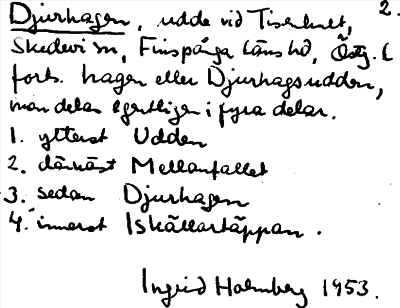 2.
Djurhagen, udde vid Tisenhult,
Skedevi sn, Finspånga läns hd, Östg. l
forts. hagen eller Djurhagsudden,
man delas egentligen i fyra delar.
1. ytterst Udden
2. därnäst Mellanfallet
3. sedan Djurhagen
4. innerst Iskällartäppan.
Ingrid Holmberg 1953.